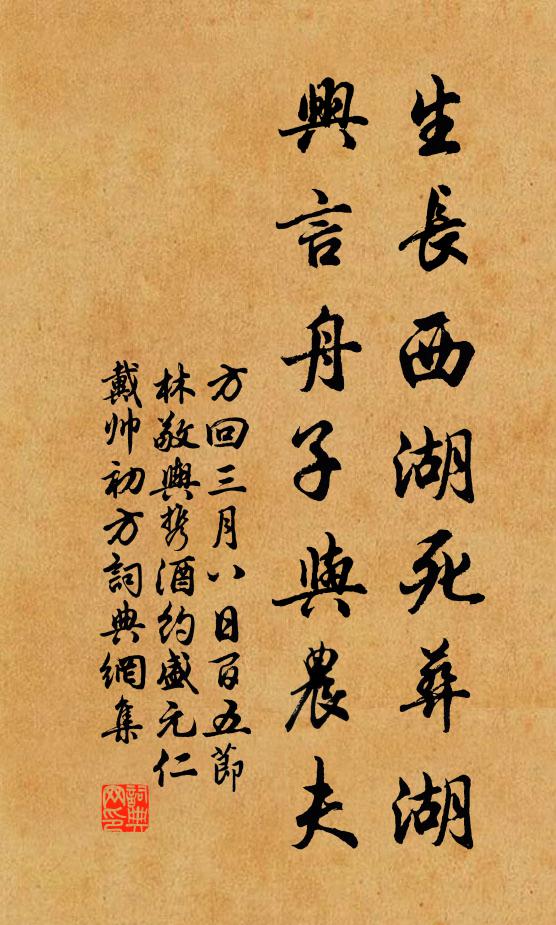 生長西湖死葬湖
興言舟子與農夫
方回三月八日百五節
林敬輿携酒約盛元仁
戴帅初方詞典網集
詞典网印